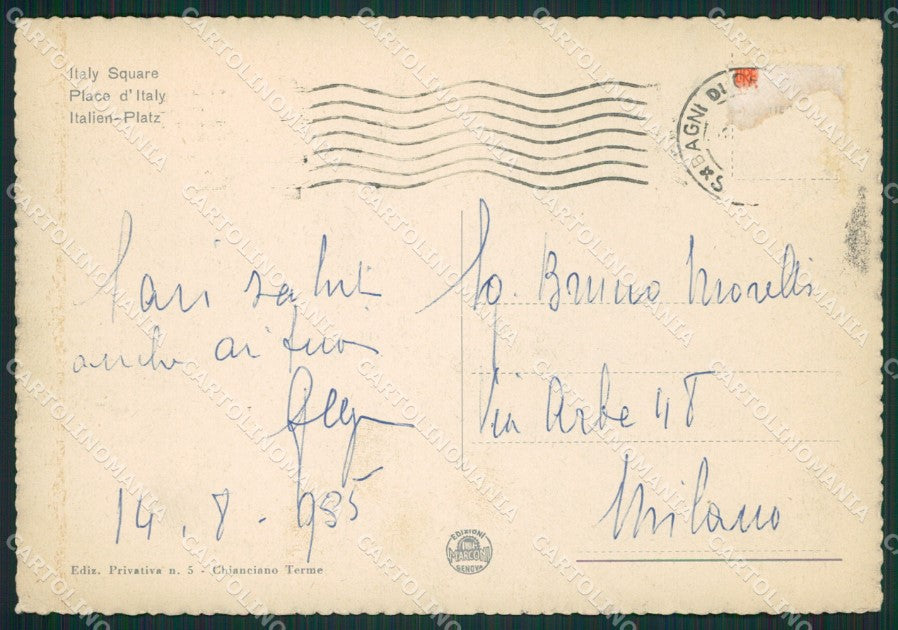 Italy Square
Place d'Italy
Italien-Platz
S * BAGNI DI
Cari saluti
anche ai tuoi
14.8.955
Sig. Bruno Morelli
Via Arbe 48
Milano
EDIZIONI
MARCONI
GENOVA
Ediz. Privativa n. 5 - Chianciano Terme
CARTOLINOMANIA